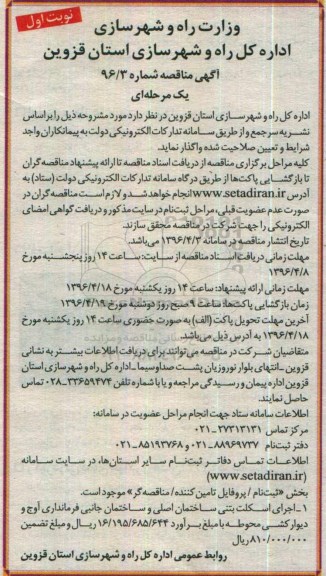 نوبت اول
وزارت راه و شهرسازی
اداره کل راه و شهرسازی استان قزوین
آگهی مناقصه شماره ۹۶/۳
یک مرحله‌ای
اداره کل راه و شهرسازی استان قزوین در نظر دارد مورد مشروحه ذیل را براساس
نشریه سرجمع و از طریق سامانه تدارکات الکترونیکی دولت به پیمانکاران واجد
شرایط و تعیین صلاحیت شده واگذار نماید.
کلیه مراحل برگزاری مناقصه از دریافت اسناد مناقصه تا ارائه پیشنهاد مناقصه گران
تا بازگشایی پاکت‌ها از طریق درگاه سامانه تدارکات الکترونیکی دولت (ستاد) به
آدرس www.setadiran.ir انجام خواهد شد و لازم است مناقصه گران در
صورت عدم عضویت قبلی، مراحل ثبت‌نام در سایت مذکور و دریافت گواهی امضای
الکترونیکی را جهت شرکت در مناقصه محقق سازند.
تاریخ انتشار مناقصه در سامانه ۱۳۹۶/۴/۳ می‌باشد.
مهلت زمانی دریافت اسناد مناقصه از سایت: ساعت ۱۴ روز پنجشنبه مورخ
۱۳۹۶/۴/۸
مهلت زمانی ارائه پیشنهاد: ساعت ۱۴ روز یکشنبه مورخ ۱۳۹۶/۴/۱۸
زمان بازگشایی پاکت‌ها: ساعت ۹ صبح روز دوشنبه مورخ ۱۳۹۶/۴/۱۹
آخرین مهلت تحویل پاکت (الف) به صورت حضوری ساعت ۱۴ روز یکشنبه مورخ
۱۳۹۶/۴/۱۸ به آدرس ذیل می‌باشد.
متقاضیان شرکت در مناقصه می‌توانند برای دریافت اطلاعات بیشتر به نشانی
قزوین ـ انتهای بلوار نوروزیان پشت صداوسیما ـ اداره کل راه و شهرسازی استان
قزوین اداره پیمان و رسیدگی مراجعه و یا با شماره تلفن ۳۳۶۵۹۴۷۴ ـ۰۲۸ تماس
حاصل نمایند.
اطلاعات سامانه ستاد جهت انجام مراحل عضویت در سامانه:
مرکز تماس ۲۷۳۱۳۱۳۱ ـ۰۲۱
دفتر ثبت‌نام ۸۸۹۶۹۷۳۷ ـ۰۲۱ و ۸۵۱۹۳۷۶۸ ـ۰۲۱
اطلاعات تماس دفاتر ثبت‌نام سایر استان‌ها، در سایت سامانه
(www.setadiran.ir)
بخش «ثبت‌نام / پروفایل تامین کننده/ مناقصه‌گر» موجود است.
۱ ـ اجرای اسکلت بتنی ساختمان اصلی و ساختمان جانبی فرمانداری آوج و
دیوارکشی محوطه با مبلغ برآورد ۱۶/۱۹۵/۶۸۵/۶۴۴ ریال و مبلغ تضمین
۸۱۰/۰۰۰/۰۰۰ ریال
روابط عمومی اداره کل راه و شهرسازی استان قزوین